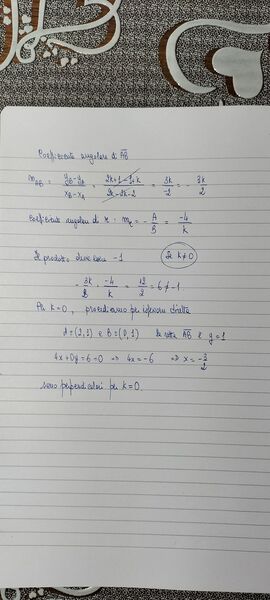 Coefficiente angolare di AB
m_AB = (y_B - y_A)/(x_B - x_A) = (2k+1-1+k)/(2k-2k-2) = 3k/-2 = - 3k/2
Coefficiente angolare di r : m_r = - A/B = -4/k
Il prodotto deve essere -1 Se k≠0
- 3k/2 · -4/k = 12/2 = 6 ≠ -1
Per k=0, procediamo per ispezione diretta
A=(2,1) e B=(0,1) la retta AB è y=1
4x+0y+6=0 ⇒ 4x=-6 ⇒ x=-3/2
sono perpendicolari per k=0.